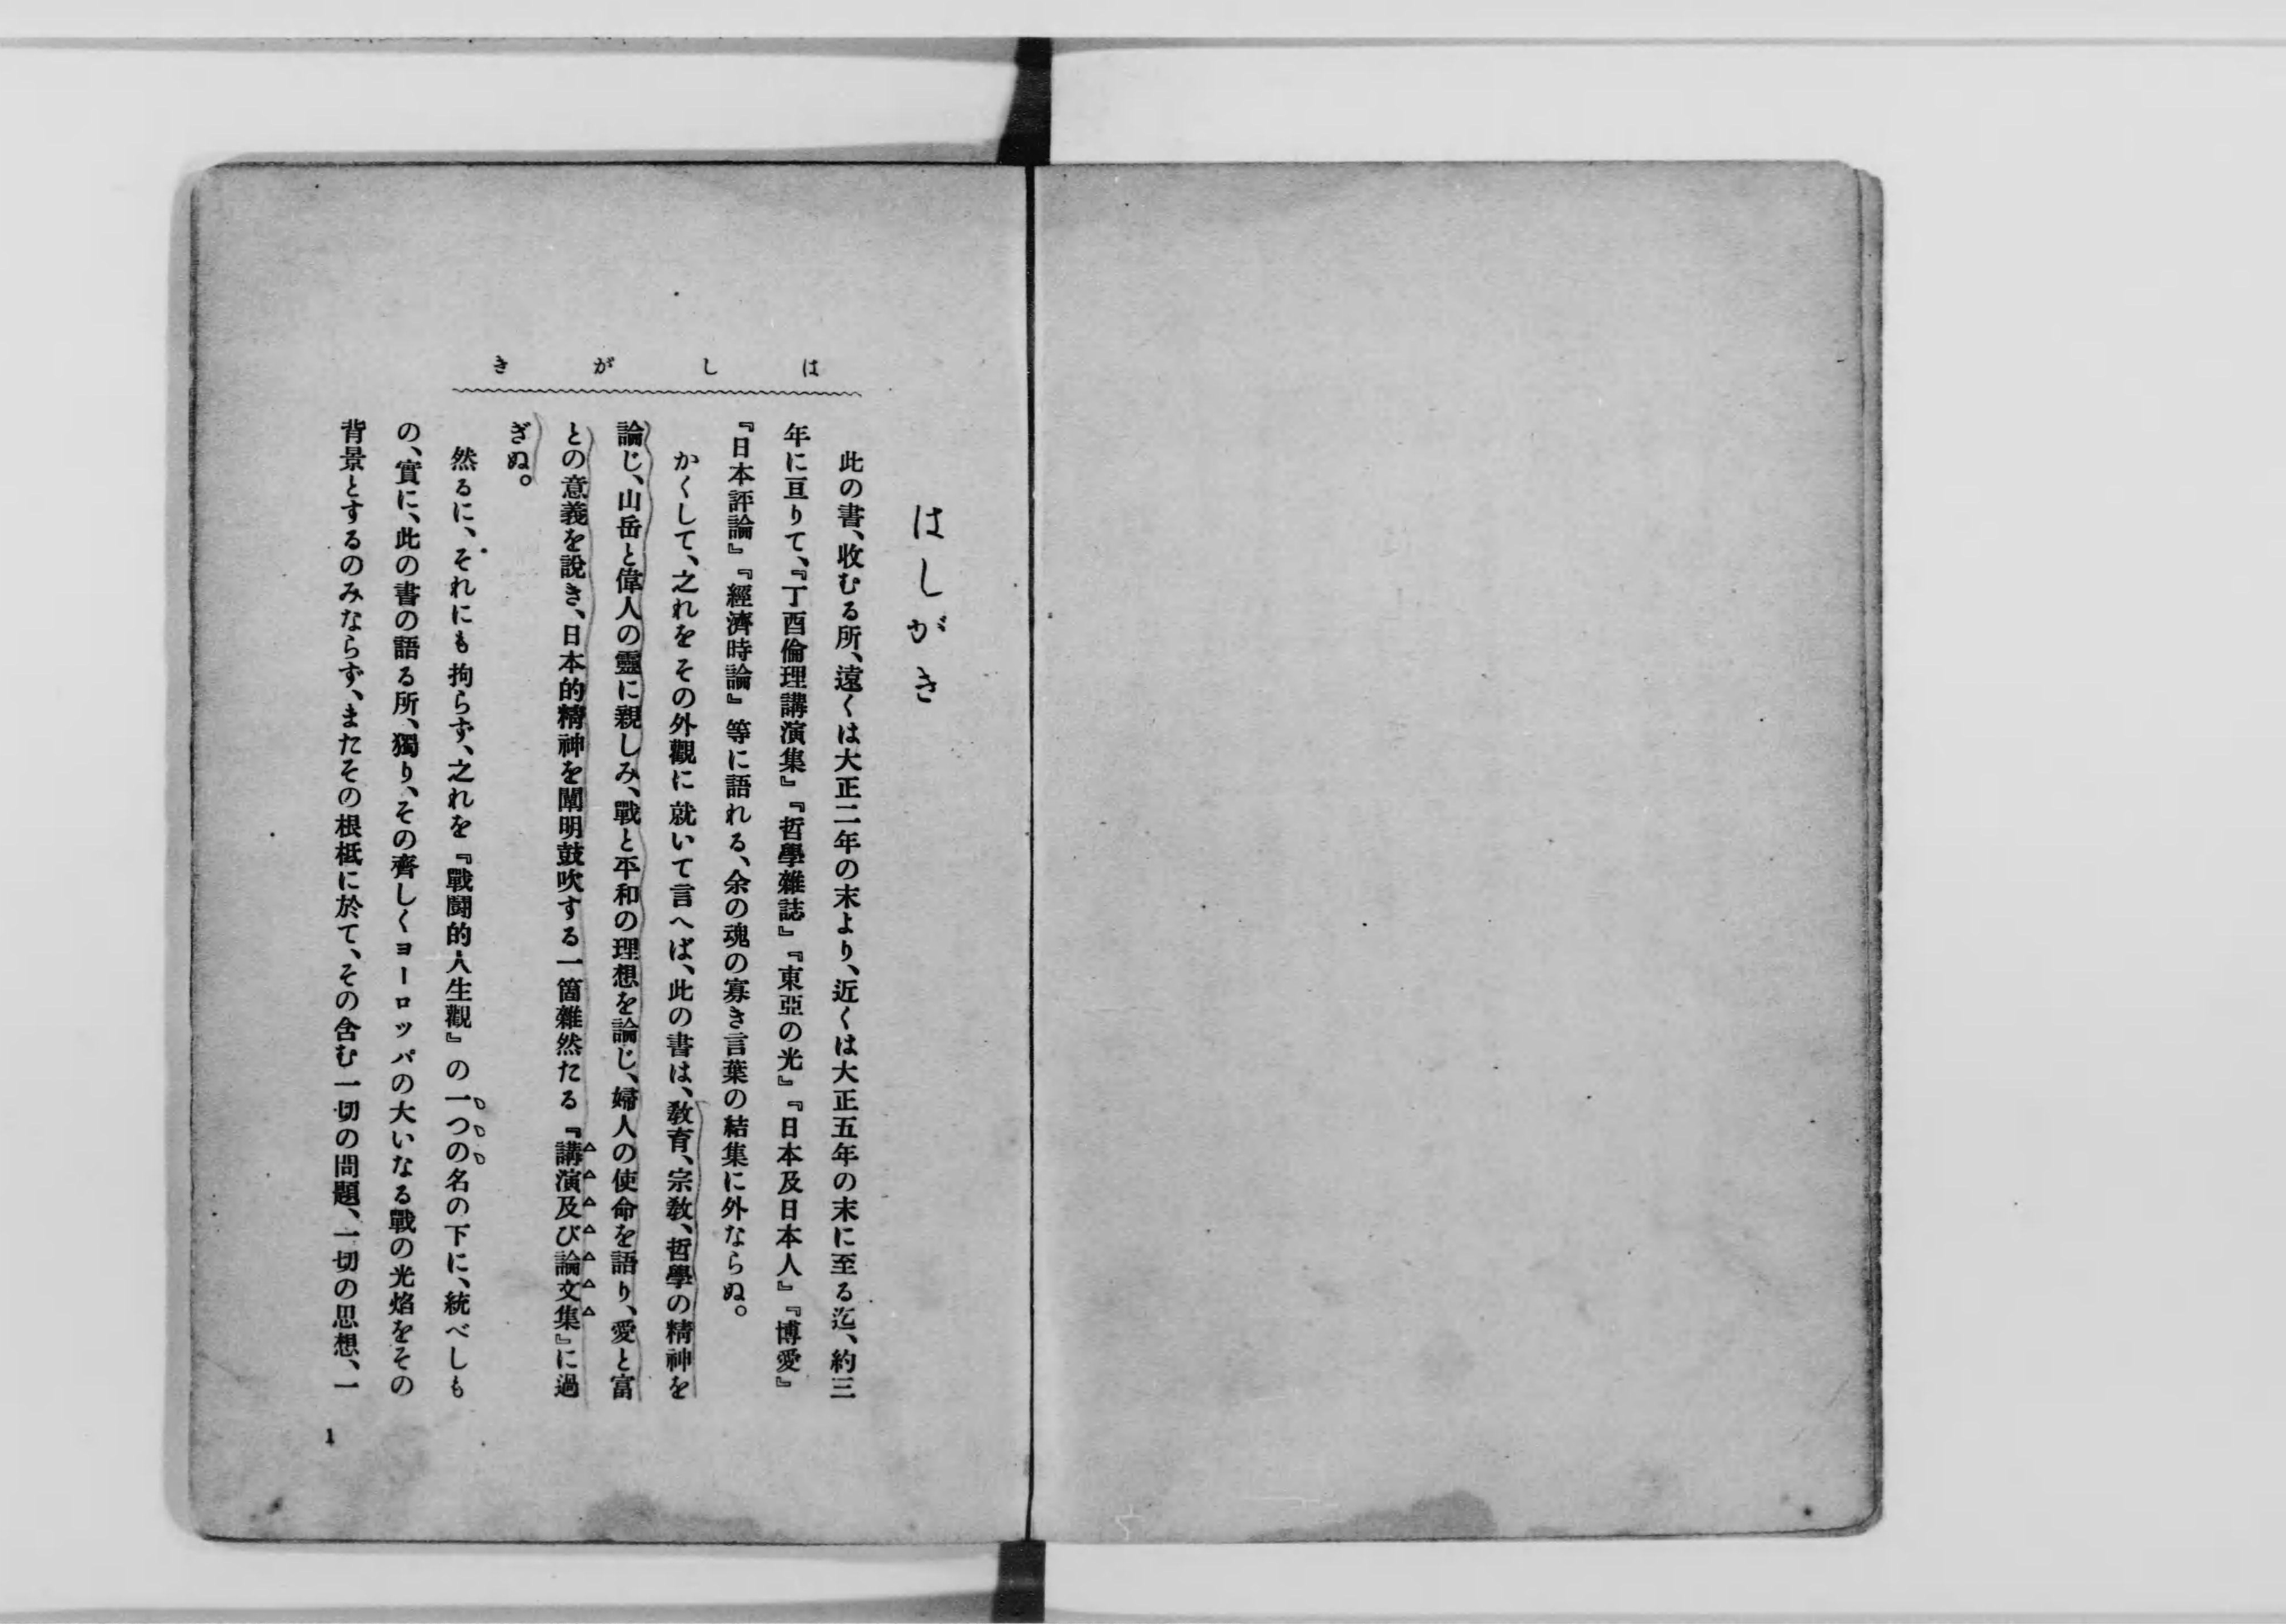 はしがき
はしがき
此の書、收むる所、遠くは大正二年の末より、近くは大正五年の末に至る迄、約三
年に亘りて、『丁酉倫理講演集』『哲學雜誌』『東亞の光』『日本及日本人』『博愛』
『日本評論』『經濟時論』等に語れる、余の魂の寡き言葉の結集に外ならぬ。
かくして、之れをその外觀に就いて言へば、此の書は、敎育、宗敎、哲學の精神を
論じ、山岳と偉人の靈に親しみ、戰と平和の理想を論じ、婦人の使命を語り、愛と富
との意義を說き、日本的精神を闡明鼓吹する一箇雜然たる『講演及び論文集』に過
ぎぬ。
然るに、それにも拘らず、之れを『戰鬪的人生觀』の一つの名の下に、統べしも
の、實に、此の書の語る所、獨り、その齊しくヨーロッパの大いなる戰の光焰をその
背景とするのみならず、またその根柢に於て、その含む一切の問題、一切の思想、一
1